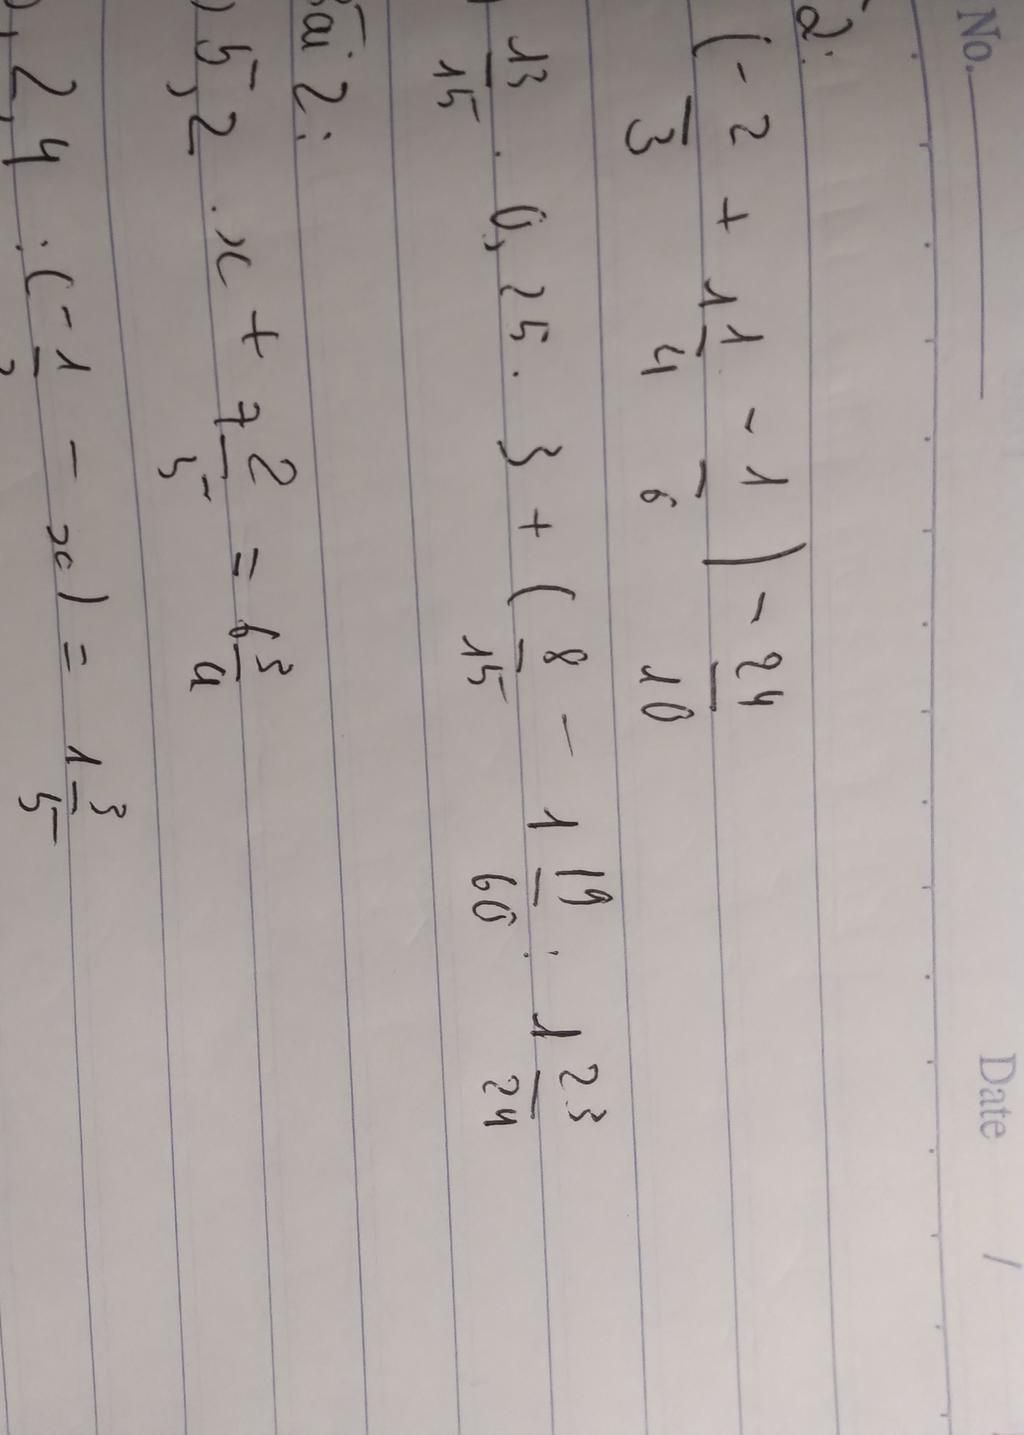 No. Date /
2:
(-2/3 + 11/4 - 1/6) - 24/10
13/15 . 0,25 . 3 + (8/15 - 1 19/60 : 1 23/24
Bài 2:
) 5,2 . x + 7 2/5 = 6 3/4
), 2,4 : (-1/2 - x) = 1 3/5